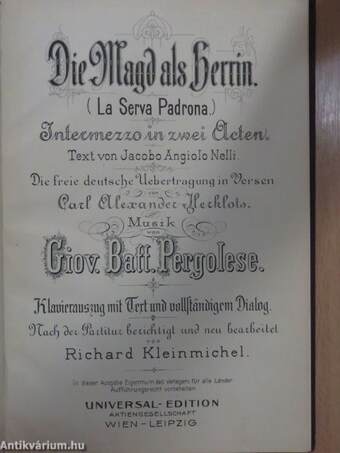 Die Magd als Herrin.
(La Serva Padrona.)
Intermezzo in zwei Acten.
Text von Jacobo Angiolo Nelli.
Die freie deutsche Uebertragung in Versen
von
Carl Alexander Herklots.
Musik
von
Giov. Batt. Pergolese.
Klavierauszug mit Text und vollständigem Dialog.
Nach der Partitur berichtigt und neu bearbeitet
von
Richard Kleinmichel.
In dieser Ausgabe Eigenthum des Verlegers für alle Länder
Aufführungsrecht vorbehalten.
UNIVERSAL-EDITION
AKTIENGESELLSCHAFT
WIEN-LEIPZIG
Antikvárium.hu